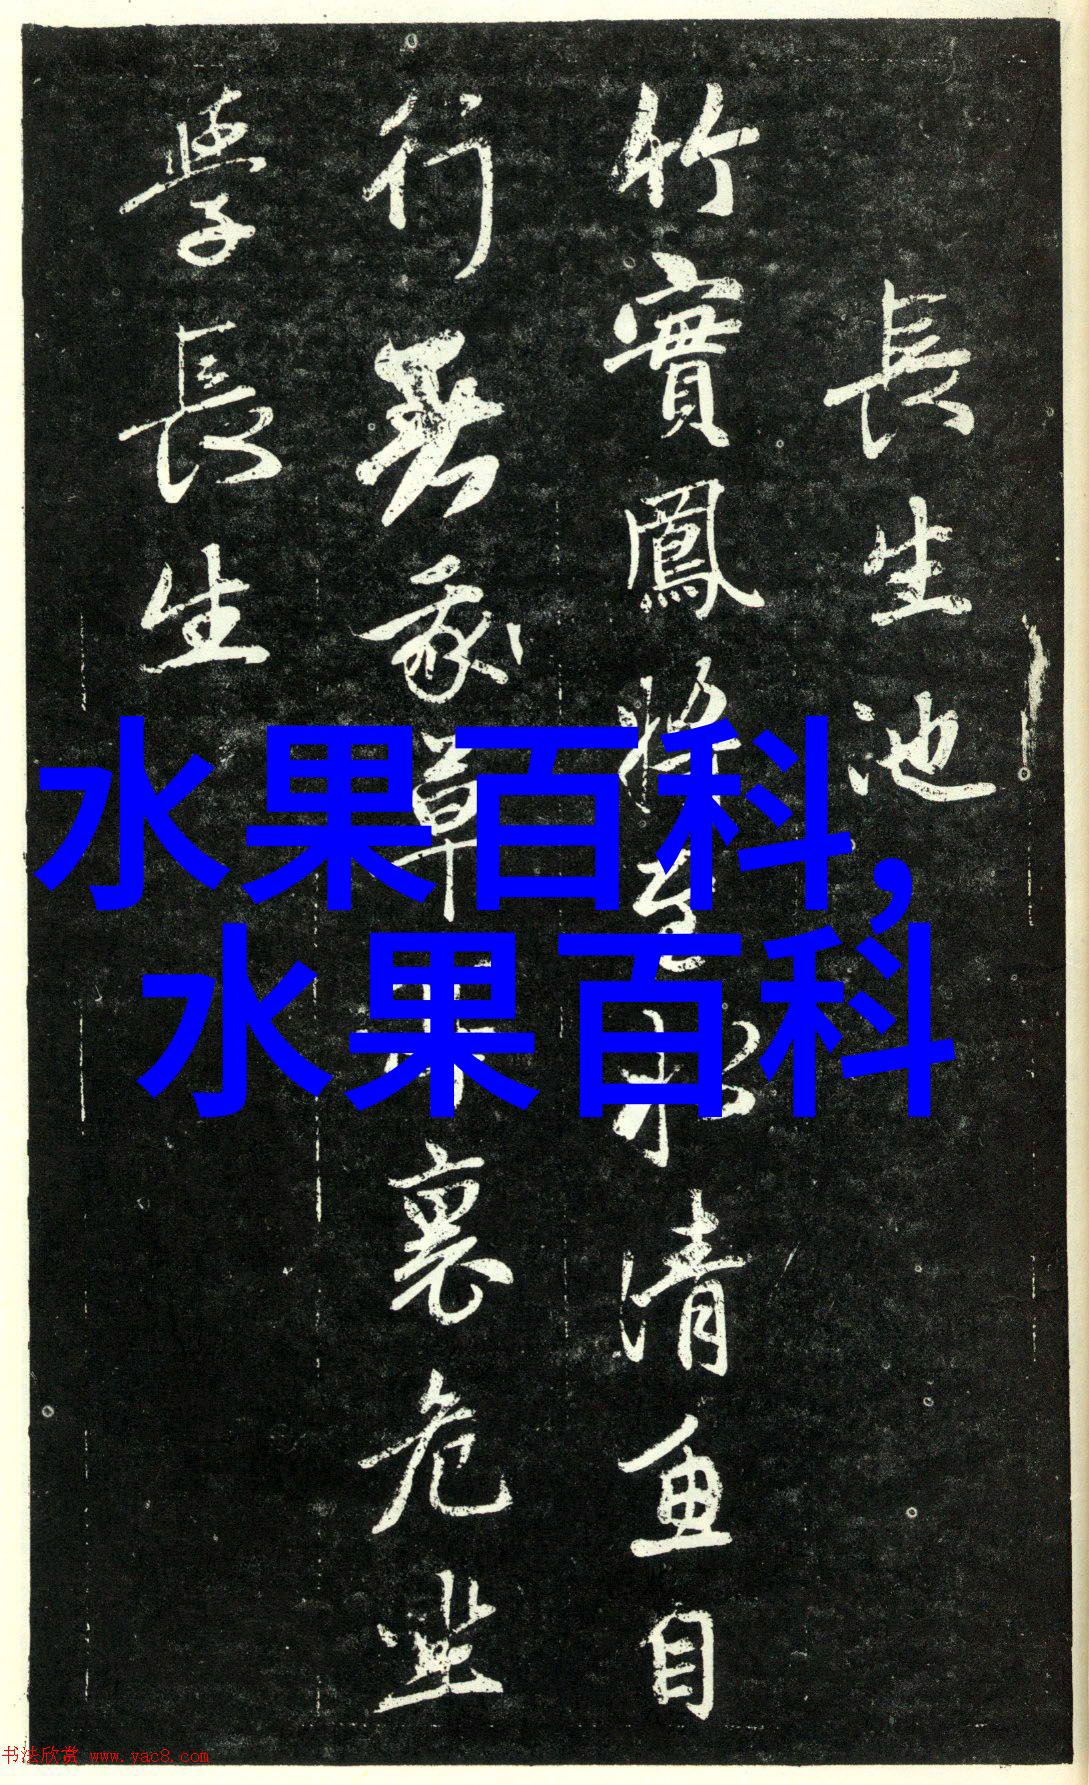 長生池
竹實鳳將至水清魚自
行無家草裏危坐
學長生
水果百科,
水果百科
书法欣赏 www.yac8.com